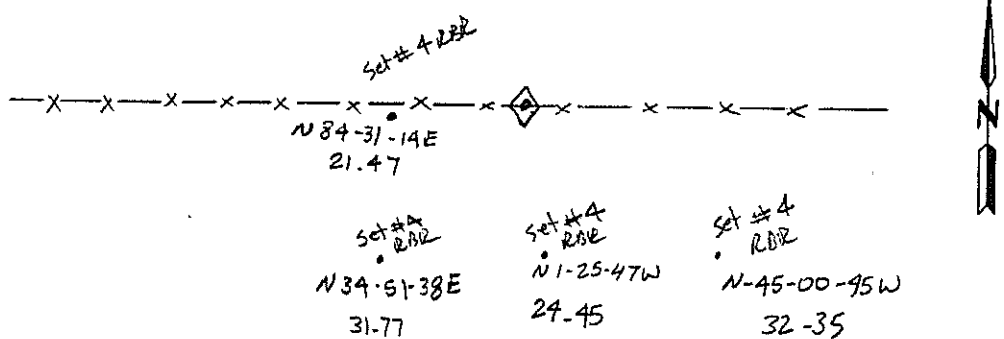 Set #4 RBR
N 84-31-14E
21.47
N
Set #4
RBR
N 34-51-38E
31-77
Set #4
RBR
N 1-25-47W
24-45
Set #4
RBR
N-45-00-45W
32-35